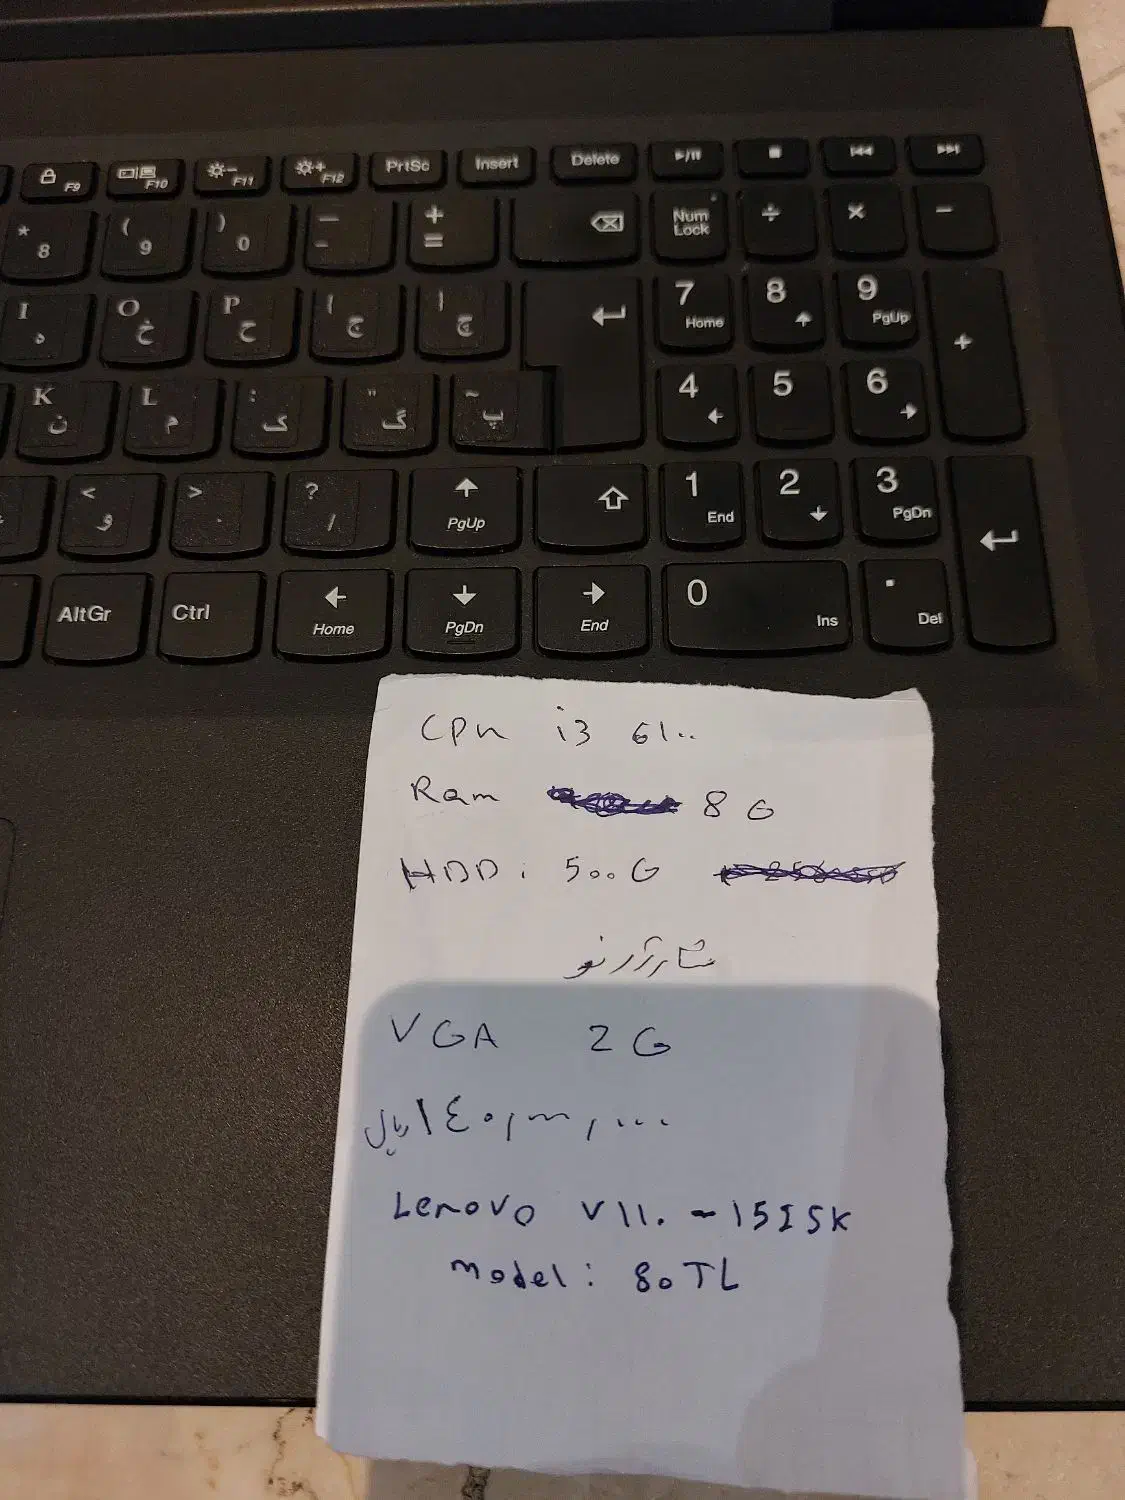 F9 F10 F11 F12 PrtSc Insert Delete
* 8 ( 9 ) 0 _ - + = Num Lock ÷ × -
I ه O خ P ح { ج } چ 7 Home 8 9 PgUp +
K ن L م : ک " گ ~ پ 4 5 6
< و > . ? / PgUp 1 End 2 3 PgDn
AltGr Ctrl Home PgDn End 0 Ins . Del
Cpu i3 61..
Ram 8 G
HDD: 500G
شارژر نو
VGA 2G
ریال
Lenovo V11. - 15ISK
Model: 80TL